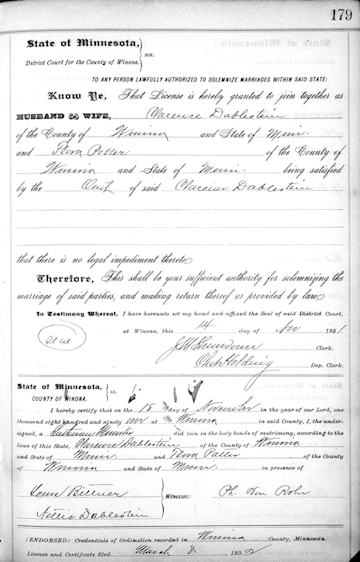 179
State of Minnesota,
District Court for the County of Winona. } ss.
TO ANY PERSON LAWFULLY AUTHORIZED TO SOLEMNIZE MARRIAGES WITHIN SAID STATE:
Know Ye, That License is hereby granted to join together as
HUSBAND & WIFE, Clarence Dablestein
of the County of Winona and State of Minn.
and Flora Potter of the County of
Winona and State of Minn. being satisfied
by the Oath of said Clarence Dablestein
that there is no legal impediment thereto
Therefore, This shall be your sufficient authority for solemnizing
the marriage of said parties, and making return thereof as provided by law.
In Testimony Whereof, I have hereunto set my hand and affixed the Seal of said District Court,
at Winona, this 14 day of Nov 1891
Seal
Clerk.
Chs Holding
Dep. Clerk.
State of Minnesota,
COUNTY OF WINONA. } ss.
I hereby certify that on the 15 day of November in the year of our Lord, one
thousand eight hundred and ninety one at Winona in said County, I, the under-
signed, a Lutheran Minister did join in the holy bonds of matrimony, according to the
laws of this State, Clarence Dablestein of the County of Winona
and State of Minn and Flora Potter of the County
of Winona and State of Minn in presence of
Louis Bittner
Witnesses.
Ph. von Rohr
Nettie Dablestein
[ENDORSED: Credentials of Ordination recorded in Winona County, Minnesota.
License and Certificate filed March 8 1892